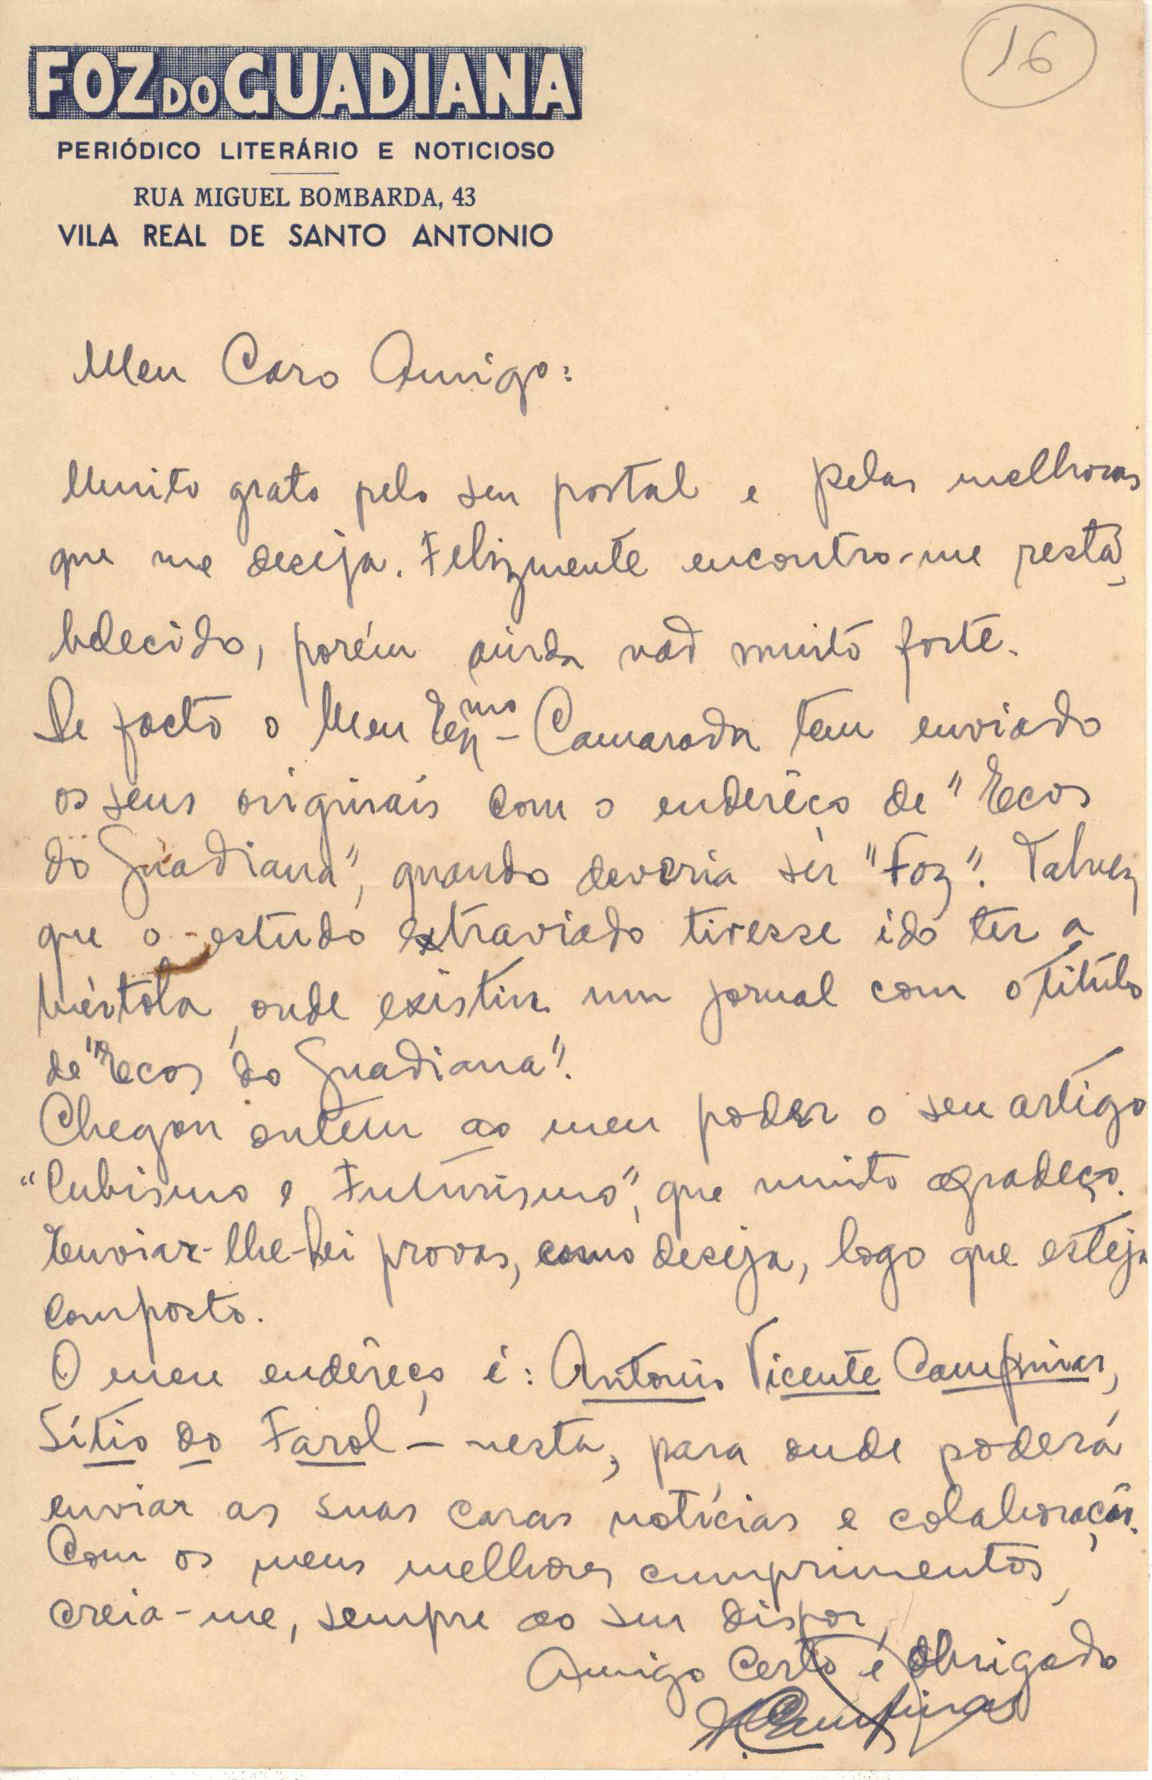 16
FOZ DO GUADIANA
PERIÓDICO LITERÁRIO E NOTICIOSO
RUA MIGUEL BOMBARDA, 43
VILA REAL DE SANTO ANTONIO
Meu Caro Amigo:
Muito grato pelo seu postal e pelas melhoras
que me deseja. Felizmente encontro-me resta-
belecido, porém ainda não muito forte.
De facto o Meu Exmo Camarada tem enviado
os seus originais com o endereço de "Ecos
do Guadiana", quando deveria ser "Foz". Talvez
que o estudo extraviado tivesse ido ter a
Mértola, onde existiu um jornal com o título
de "Ecos do Guadiana".
Chegou ontem ao meu poder o seu artigo
"Cubismo e Futurismo", que muito agradeço.
Enviar-lhe-hei provas, como deseja, logo que esteja
composto.
O meu endêreço é: Antonio Vicente Campinas,
Sítio do Farol - nesta, para onde poderá
enviar as suas caras notícias e colaboração.
Com os meus melhores cumprimentos,
creia-me, sempre ao seu dispor,
Amigo Certo e Obrigado
V. Campinas